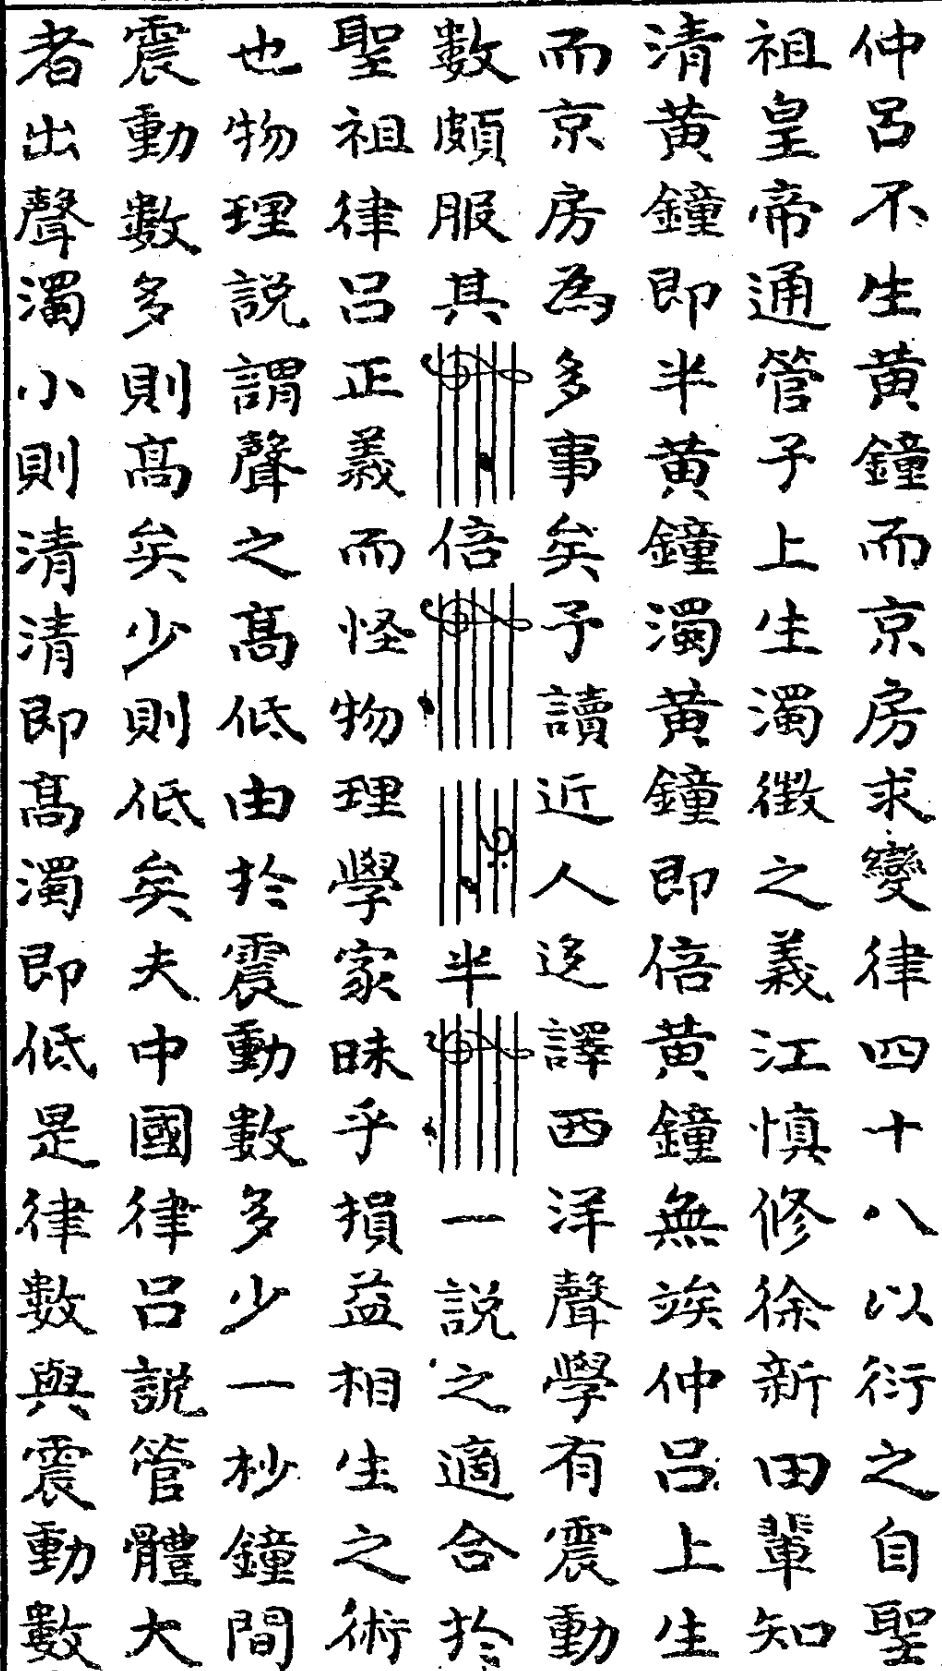 仲呂不生黄鐘而京房求變律四十八以衍之自聖
祖皇帝通管子上生濁徵之義江慎修徐新田輩知
清黄鐘即半黄鐘濁黄鐘即倍黄鐘無竢仲呂上生
而京房為多事矣予讀近人迻譯西洋聲學有震動
數頗服其倍半一説之適合於
聖祖律呂正義而怪物理學家昧乎損益相生之術
也物理説謂聲之髙低由於震動數多少一杪鐘間
震動數多則髙矣少則低矣夫中國律呂説管體大
者出聲濁小則清清即髙濁即低是律數與震動數